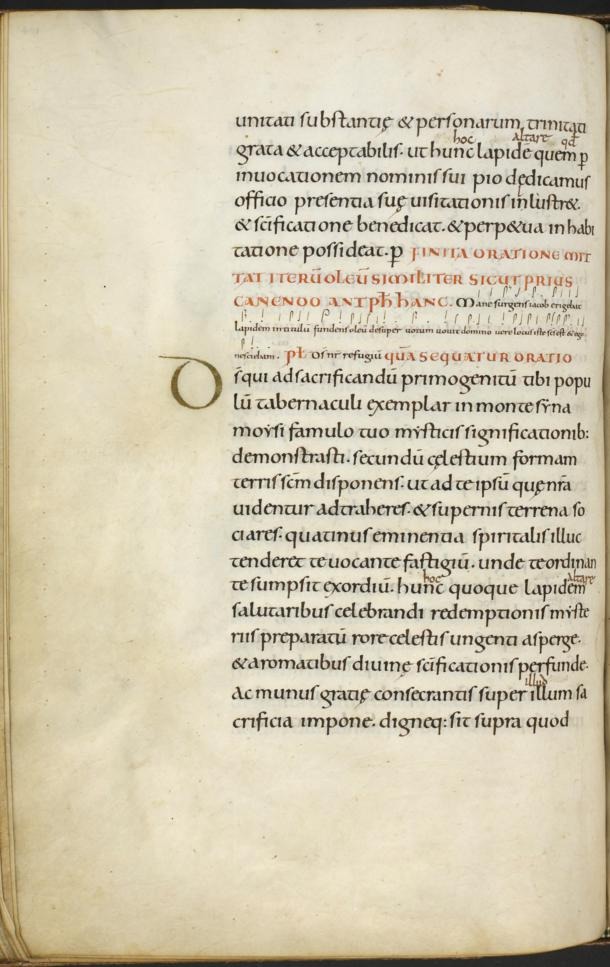 unitati substantię & personarum trinitati
hoc altare qd
grata & acceptabilis. ut hunc lapidē quem p
inuocationem nominis sui pio dędicamus
officio presentia suę uisitationis inlustr&.
& scificatione benedicat. & perp&ua in habi
tatione possideat. p FINITA ORATIONE MIT
TAT ITERŪ OLEŪ SIMILITER SICUT PRIUS
CANENDO ANTPħ HANC. Mane surgens iacob erigebat
lapidem in titulū fundens oleū desuper uotum uouit domino uere locus iste scs est & ego
nesciebam. Pł Ds nr refugiū QUA SEQUATUR ORATIO
Ds qui ad sacrificandū primogenitū tibi popu
lū tabernaculi exemplar in monte sẏna
moẏsi famulo tuo mẏsticis significationib:
demonstrasti. secundū cęlestium formam
terris scm disponens. ut ad te ipsū quę nra
uidentur adtraheres. & supernis terrena so
ciares. quatinus eminentia spiritalis illuc
tenderet te uocante fastigiū. unde te ordinan
hoc altare
te sumpsit exordiū. hunc quoque lapidem
salutaribus celebrandi redemptionis mẏste
riis preparatū rore celestis unguenti asperge.
& aromatibus diuinę scificationis perfunde.
illud
Ac munus gratię consecrantis super illum sa
crificia impone. digneq: sit supra quod